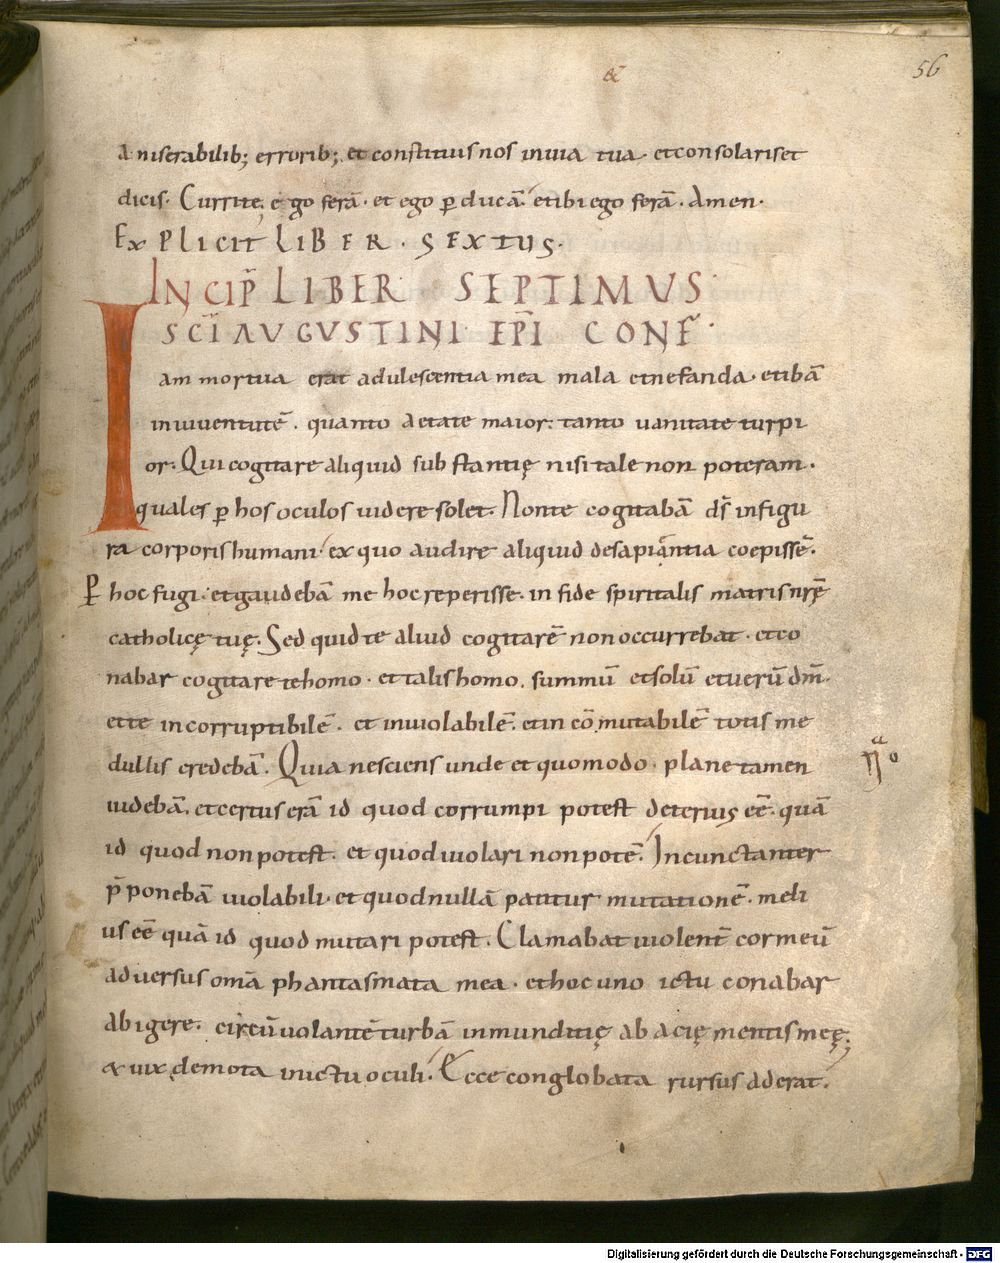 &
56
a miserabilib; errorib; et constituis nos in uia tua· et consolaris et
dicis· Currite, ego ferā· et ego ꝑducā· et ibi ego ferā· Amen·
EXPLICIT LIBER· SEXTUS·
INCIP̄ LIBER SEPTIMUS
SC̄I AUGUSTINI EP̄I CONF̄·
Iam mortua erat adulescentia mea mala et nefanda· et ibā
in iuuentutē· quanto aetate maior· tanto uanitate turpi
or· Qui cogitare aliquid substantię nisi tale non poteram·
quales ꝑ hos oculos uidere solet· Non te cogitabā d̄s in figu
ra corporis humani· ex quo audire aliquid de sapiantia coepissē·
ꝑ hoc fugi· et gaudebā me hoc reperisse· in fide spiritalis matris nr̄ę
catholicę tuę· Sed quid te aliud cogitarē non occurrebat· et co
nabar cogitare te homo· et talis homo· summū et solū et uerū dm̄·
et te incorruptibilē· et inuiolabilē· et incōmutabilē totis me
dullis credebā· Quia nesciens unde et quomodo· plane tamen
uidebā· et certus erā id quod corrumpi potest deterius eē· quā
id quod non potest· et quod uiolari non potē· Incunctanter
p̄ponebā uiolabili· et quod nullā patitur mutationē· meli
us eē quā id quod mutari potest· Clamabat uiolent̄ cor meū
aduersus omā phantasmata mea· et hoc uno ictu conabar
abigere· circūuolantē turbā inmunditię ab acię mentis meę;
& uix demota in ictu oculi· Ecce conglobata rursus aderat·
Digitalisierung gefördert durch die Deutsche Forschungsgemeinschaft - DFG